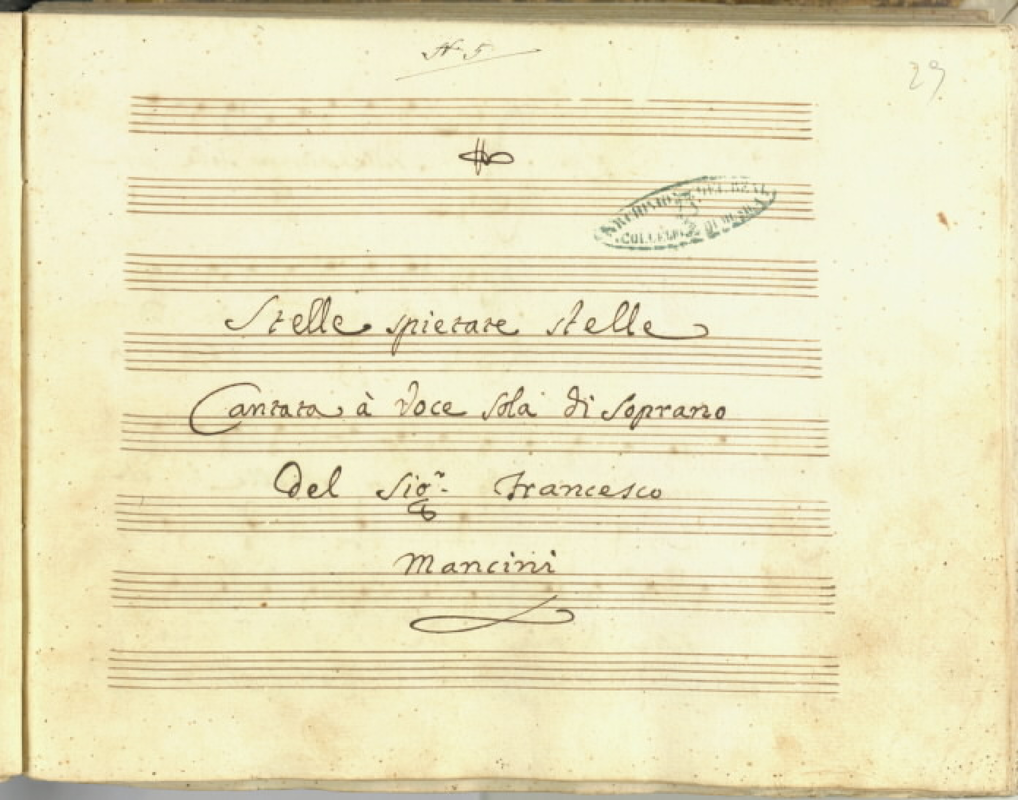 N. 5
29
ARCHIVIO DEL REAL
COLLEGIO DI MUSICA
Stelle spietate stelle
Cantata à voce sola di soprano
Del Sigr. Francesco
Mancini